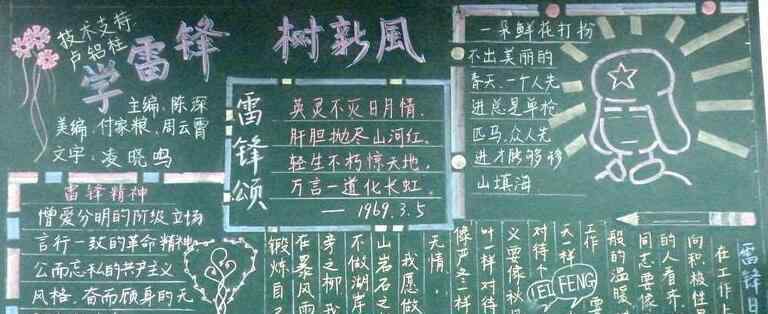 技术支持
卢铝柱
学雷锋 树新風
主编:陈深
美编:付家粮、周云霄
文字:凌晓鸣
雷锋颂
英灵不灭日月情,
肝胆抛尽山河红。
轻生不朽惊天地,
万言一道化长虹。
—— 1969.3.5
一朵鲜花打扮
不出美丽的
春天,一个人先
进总是单枪
匹马,众人先
进才能够移
山填海.
雷锋精神
憎爱分明的阶级立场
言行一致的革命精神
公而忘私的共产主义
风格,奋而顾身的无
雷锋日
在工作上
向积极性最
的人看齐,
同志要像
般的温暖,
工作
要
天一样
对待个
义要像秋风
叶一样对待
像严冬一样
无情,
我愿做
山岩石之
不做湖岸
旁之柳我
在暴风雨
锻炼自己
LEI FENG